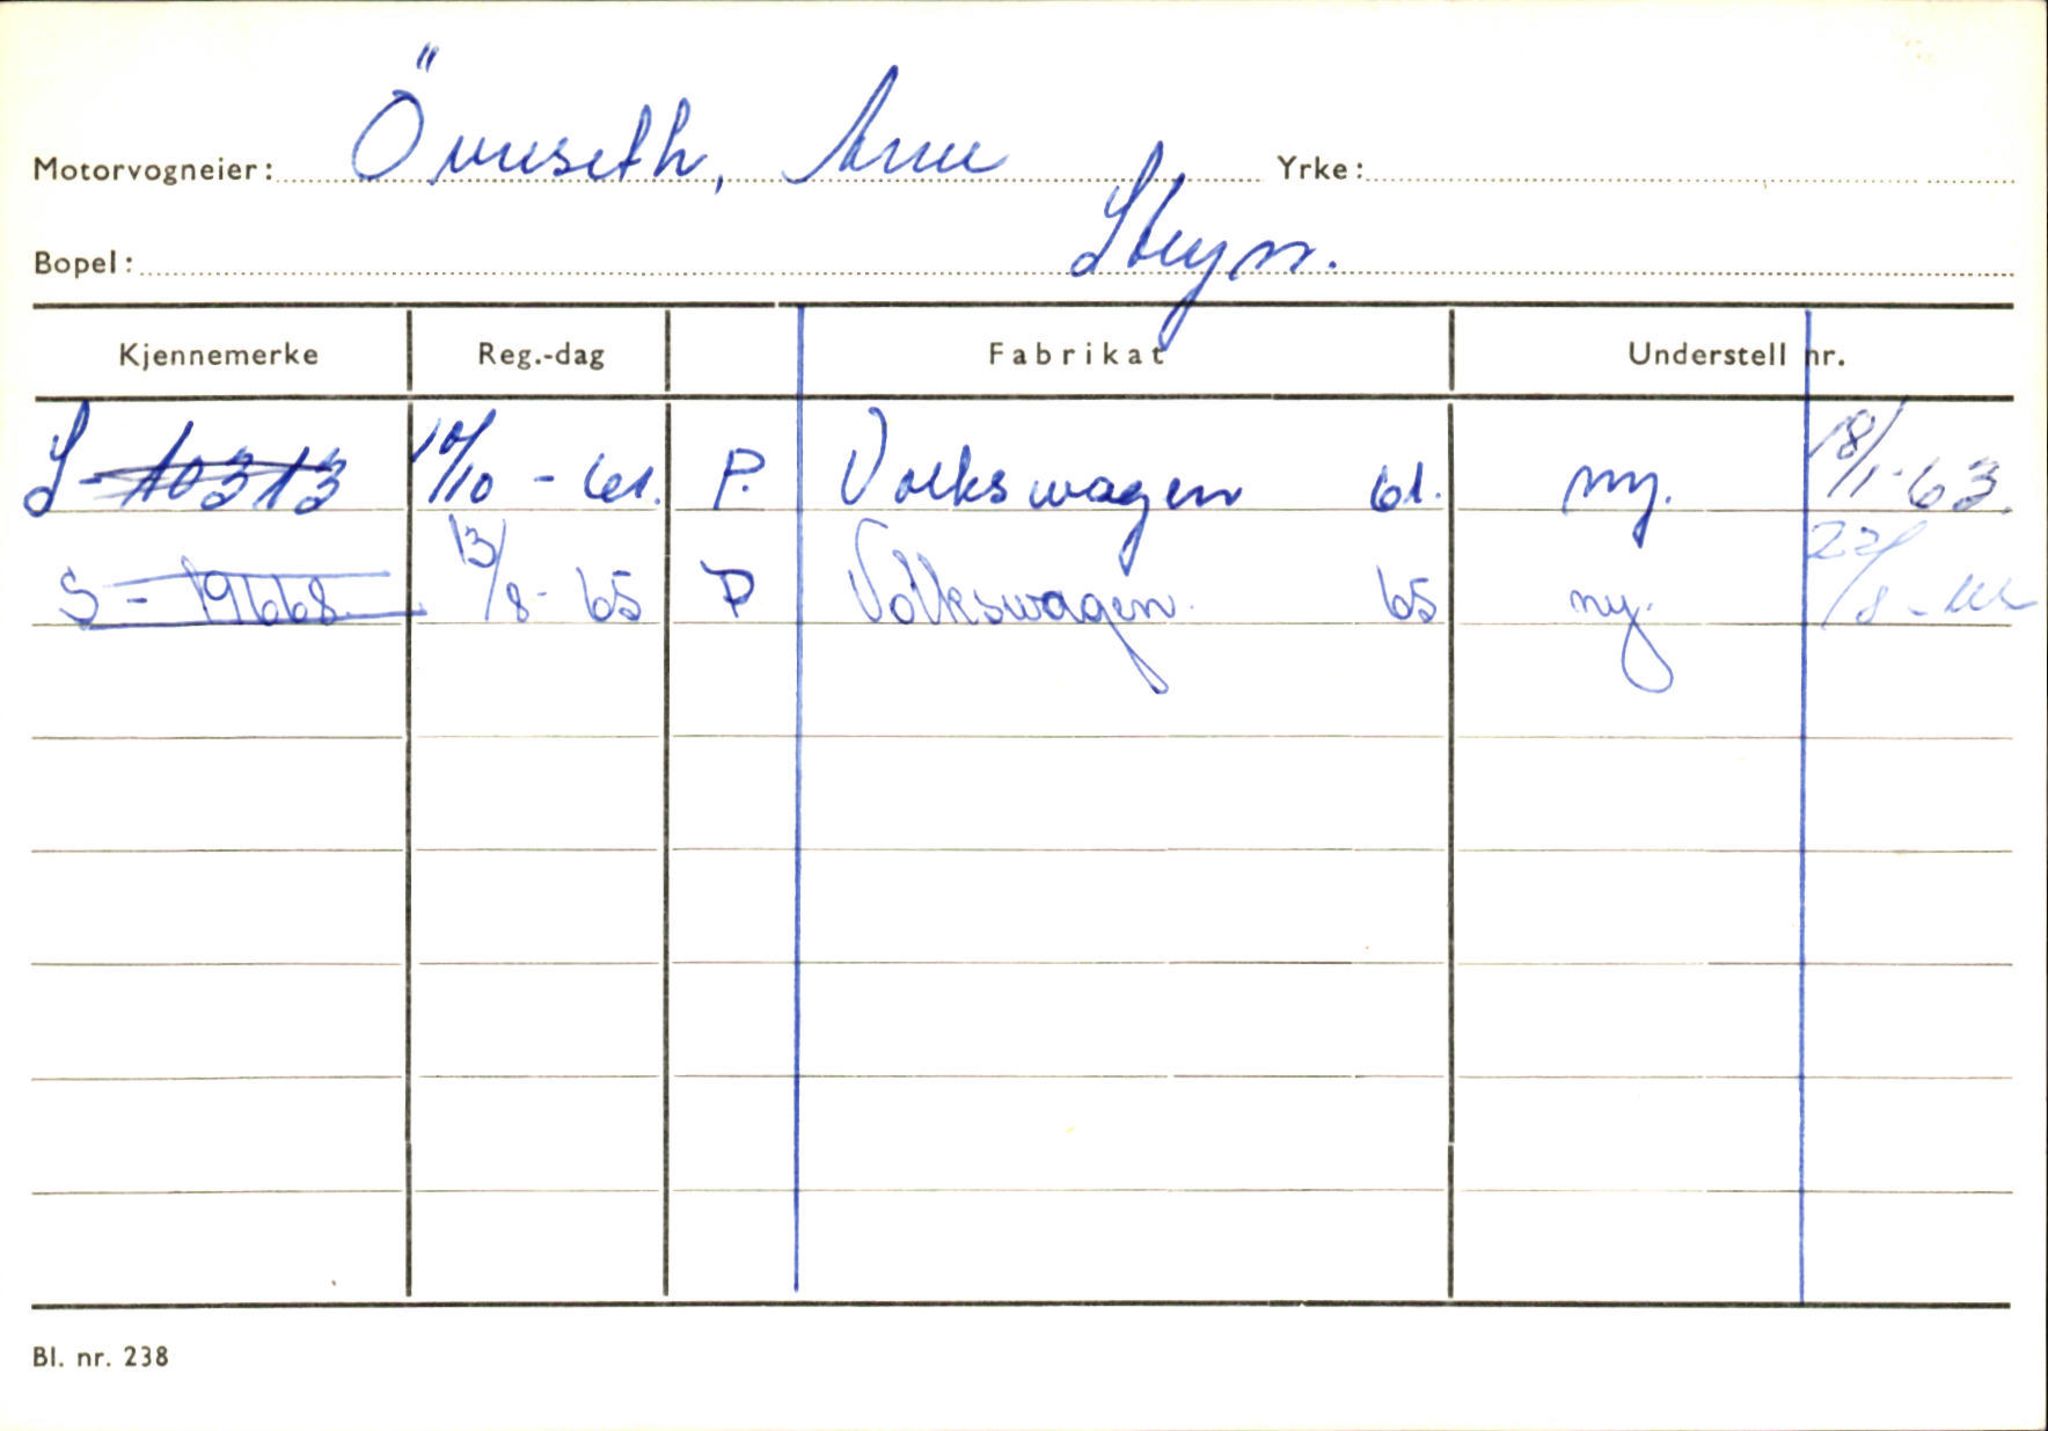 Motorvogneier: Övreseth, Arne Yrke:
Bopel: Stryn.
Kjennemerke Reg.-dag Fabrikat Understell nr.
S-10313 10/10 - 61. P. Volkswagen 61. ny. 18/1-63.
S - 19668 13/8-65 P Volkswagen 65 ny. 22/8-
Bl. nr. 238